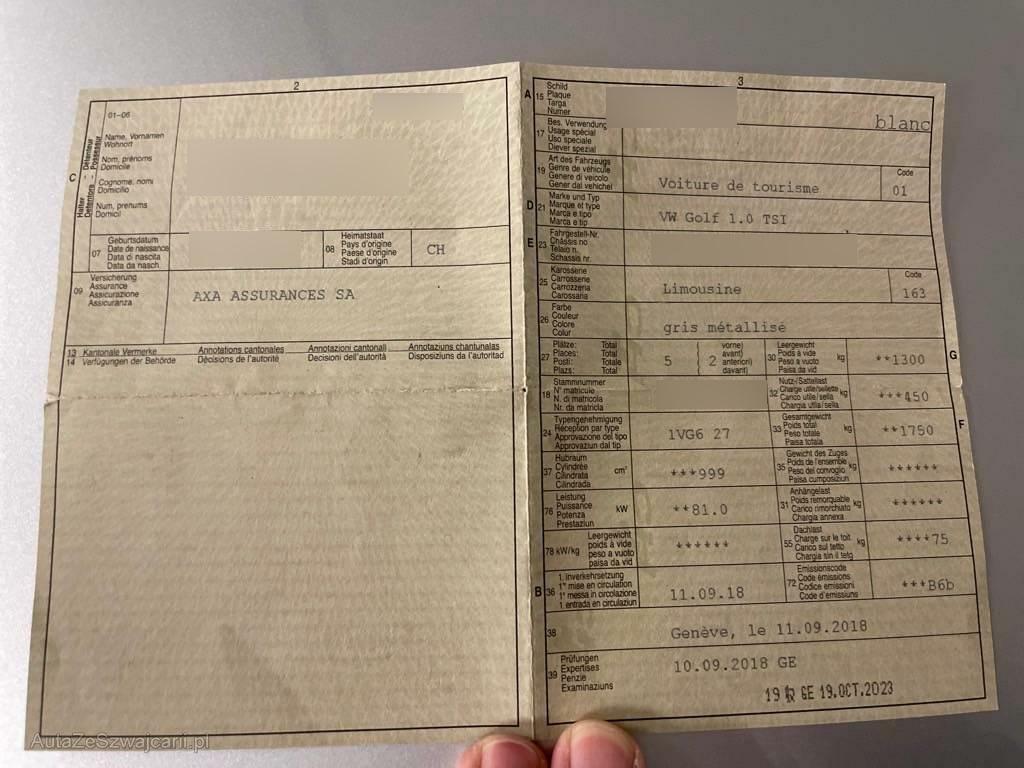 2
01–06
C
Halter Détenteur
Detentors - Possessur
Name, Vornamen
Wohnort
Nom, prénoms
Domicile
Cognome, nomi
Domicilio
Num, prenums
Domicil
07
Geburtsdatum
Date de naissance
Data di nascita
Data da nasch.
08
Heimatstaat
Pays d'origine
Paese d'origine
Stadi d'origin
CH
09
Versicherung
Assurance
Assicurazione
Assicuranza
AXA ASSURANCES SA
13 Kantonale Vermerke Annotations cantonales Annotazioni cantonali Annotaziuns chantunalas
14 Verfügungen der Behörde Décisions de l'autorité Decisioni dell'autorità Disposiziuns da l'autoritad
3
A 15
Schild
Plaque
Targa
Numer
blanc
17
Bes. Verwendung
Usage spécial
Uso speciale
Diever spezial
19
Art des Fahrzeugs
Genre de véhicule
Genere di veicolo
Gener dal vehichel
Voiture de tourisme
Code
01
D 21
Marke und Typ
Marque et type
Marca e tipo
Marca e tip
VW Golf 1.0 TSI
E 23
Fahrgestell-Nr.
Châssis no
Telaio n.
Schassis nr.
25
Karosserie
Carrosserie
Carrozzeria
Carossaria
Limousine
Code
163
26
Farbe
Couleur
Colore
Colur
gris métallisé
27
Plätze: Total
Places: Total
Posti: Totale
Plazs: Total
5
2
vorne)
avant)
anteriori)
davant)
30
Leergewicht
Poids à vide
Peso a vuoto
Paisa da vid
kg
**1300
G
18
Stammnummer
N° matricule
N. di matricola
Nr. da matricla
32
Nutz-/Sattellast
Charge utile/sellette
Carico utile/sella
Chargia utila/sella
kg
***450
24
Typengenehmigung
Réception par type
Approvazione del tipo
Approvaziun dal tip
1VG6 27
33
Gesamtgewicht
Poids total
Peso totale
Paisa totala
kg
**1750
F
37
Hubraum
Cylindrée
Cilindrata
Cilindrada
cm³
***999
35
Gewicht des Zuges
Poids de l'ensemble
Peso del convoglio
Paisa cumposiziun
kg
******
76
Leistung
Puissance
Potenza
Prestaziun
kW
**81.0
31
Anhängelast
Poids remorquable
Carico rimorchiato
Chargia annexa
kg
******
78 kW/kg
Leergewicht
poids à vide
peso a vuoto
paisa da vid
******
55
Dachlast
Charge sur le toit
Carico sul tetto
Chargia sin il tetg
kg
****75
B 36
1. Inverkehrsetzung
1re mise en circulation
1a messa in circolazione
1. entrada en circulaziun
11.09.18
72
Emissionscode
Code émissions
Codice emissioni
Code d'emissiuns
***B6b
38
Genève, le 11.09.2018
39
Prüfungen
Expertises
Perizie
Examinaziuns
10.09.2018 GE
GE 19.OCT.2023
AutaZeSzwajcarii.pl